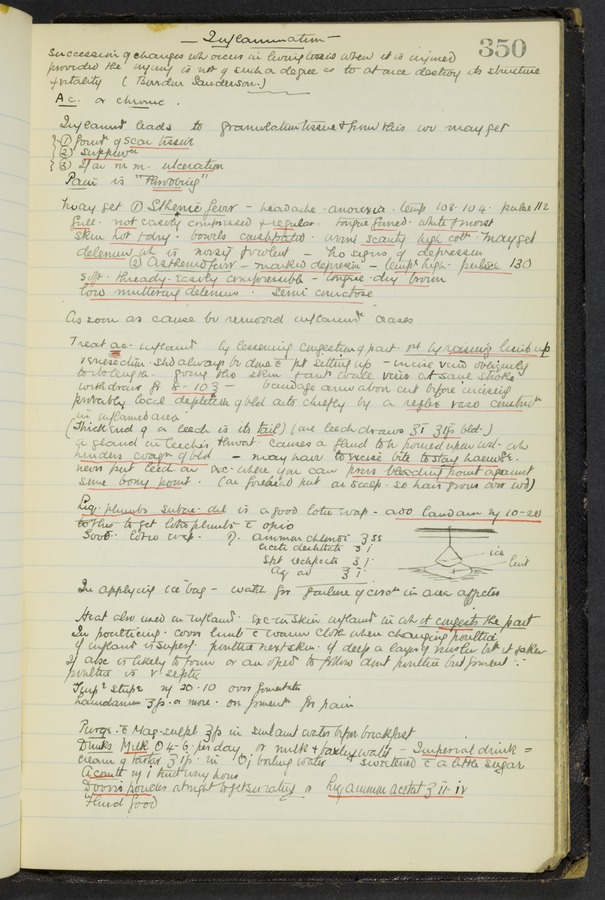 350
— Inflammation —
Succession of changes wh occurs in living tissue when it is injured
provided the injury is not of such a degree as to at once destroy its structure
& vitality ( Burdon Sanderson.)
Ac. or chronic.
Inflammn leads to granulation tissue & from this we may get
① formn of scar tissue
② suppurn
③ If on m.m. ulceration
Pain is "Throbbing"
May get ① Sthenic fever - headache . anorexia . temp 103-104 . pulse 112
full - not easily compressed & regular . tongue furred . white & moist
skin hot & dry . bowels constipated . urine scanty high cold . may get
delerium wh is noisy & violent - no signs of depression
② Asthenic fever - marked depression - temp high - pulse 130
soft - thready - easily compressible - tongue dry brown
low muttering delerium . Semi comatose
As soon as cause be removed inflammn ceases
Treat ac- inflammn by lessening congestion of part. 1st by raising limb up
Venesection . shd always be done c pt sitting up - incise vein obliquely
to its length going thro skin & ant wall vein at same stroke
withdraw 8-10 ℥ - bandage arm above cut before incising
probably local depletion of bld acts chiefly by a reflex vaso constrictn
in inflamed area.
(Thick end of a leech is its tail) (one leech draws ʒi ʒiss bld.)
a gland in leeches throat causes a fluid to be poured upon wd- wh
hinders coagn of bld - may have to excise bite to stay haemge.
never put leech on exc- where you can press bleeding point against
some bony point. (on forehead put on scalp . so hair grows over wd)
Liq. plumbi subac- dil is a good lotio evap - add laudanum ♏ 10-20
to this to get lotio plumbi c opio
Good lotio evap. ℞. ammon chloridi ʒss
Spt rectificati ℥i
Aq ad ℥i
ice
lint
In applying ice bag - watch for failure of circn in area affected
Heat also used in inflammn . exc in skin inflammn in wh it congests the part
In poulticing . cover limb c warm cloth when changing poultice
If inflammn is superfl . poultice next skin . if deep a layer of
If absc is likely to form or an opern to follow dont poultice but foment ∵
poultice is v septic
laudanum ʒss or more . on foment for pain
Purge . c Mag-sulph ʒss in water before breakfast
Drinks Milk O 4-6 per day . or milk & barley water - Imperial drink =
cream of tartar ʒiss in Oi boiling water sweetened c a little sugar
Aconite ♏ i hour
Dovers powder at night to get or liq ammon acetat ʒii-iv
Fluid food